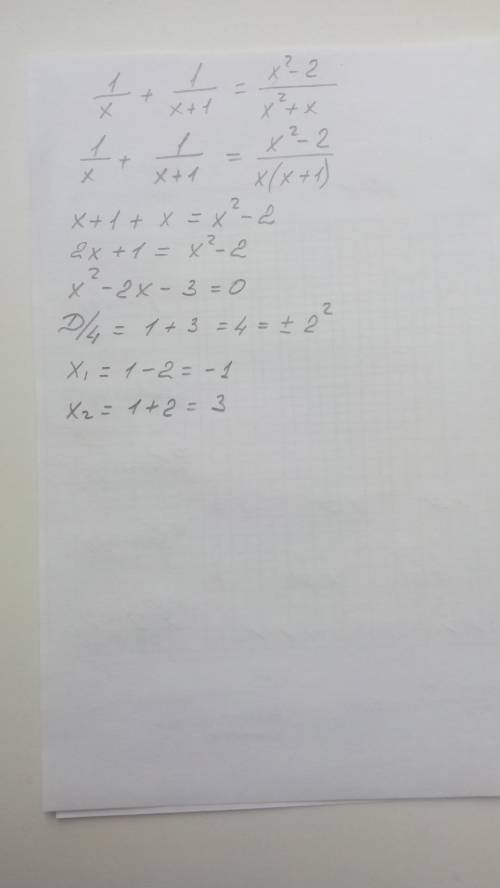 1/x + 1/(x+1) = (x²-2)/(x²+x)
1/x + 1/(x+1) = (x²-2)/(x(x+1))
x+1+x = x²-2
2x+1 = x²-2
x²-2x-3=0
D/4 = 1+3 =4 = ±2²
x₁ = 1-2 = -1
x₂ = 1+2 = 3